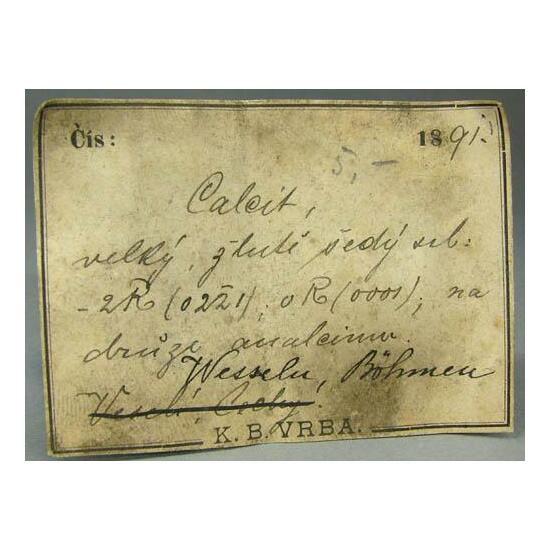 Čís: 1891.
5,–
Calcit,
velký, žlutě šedý krb:
-2R (022̄1), oR (0001), na
drúze analcimu.
Wesseln, Böhmen
Veselí, Čechy.
K. B. VRBA.